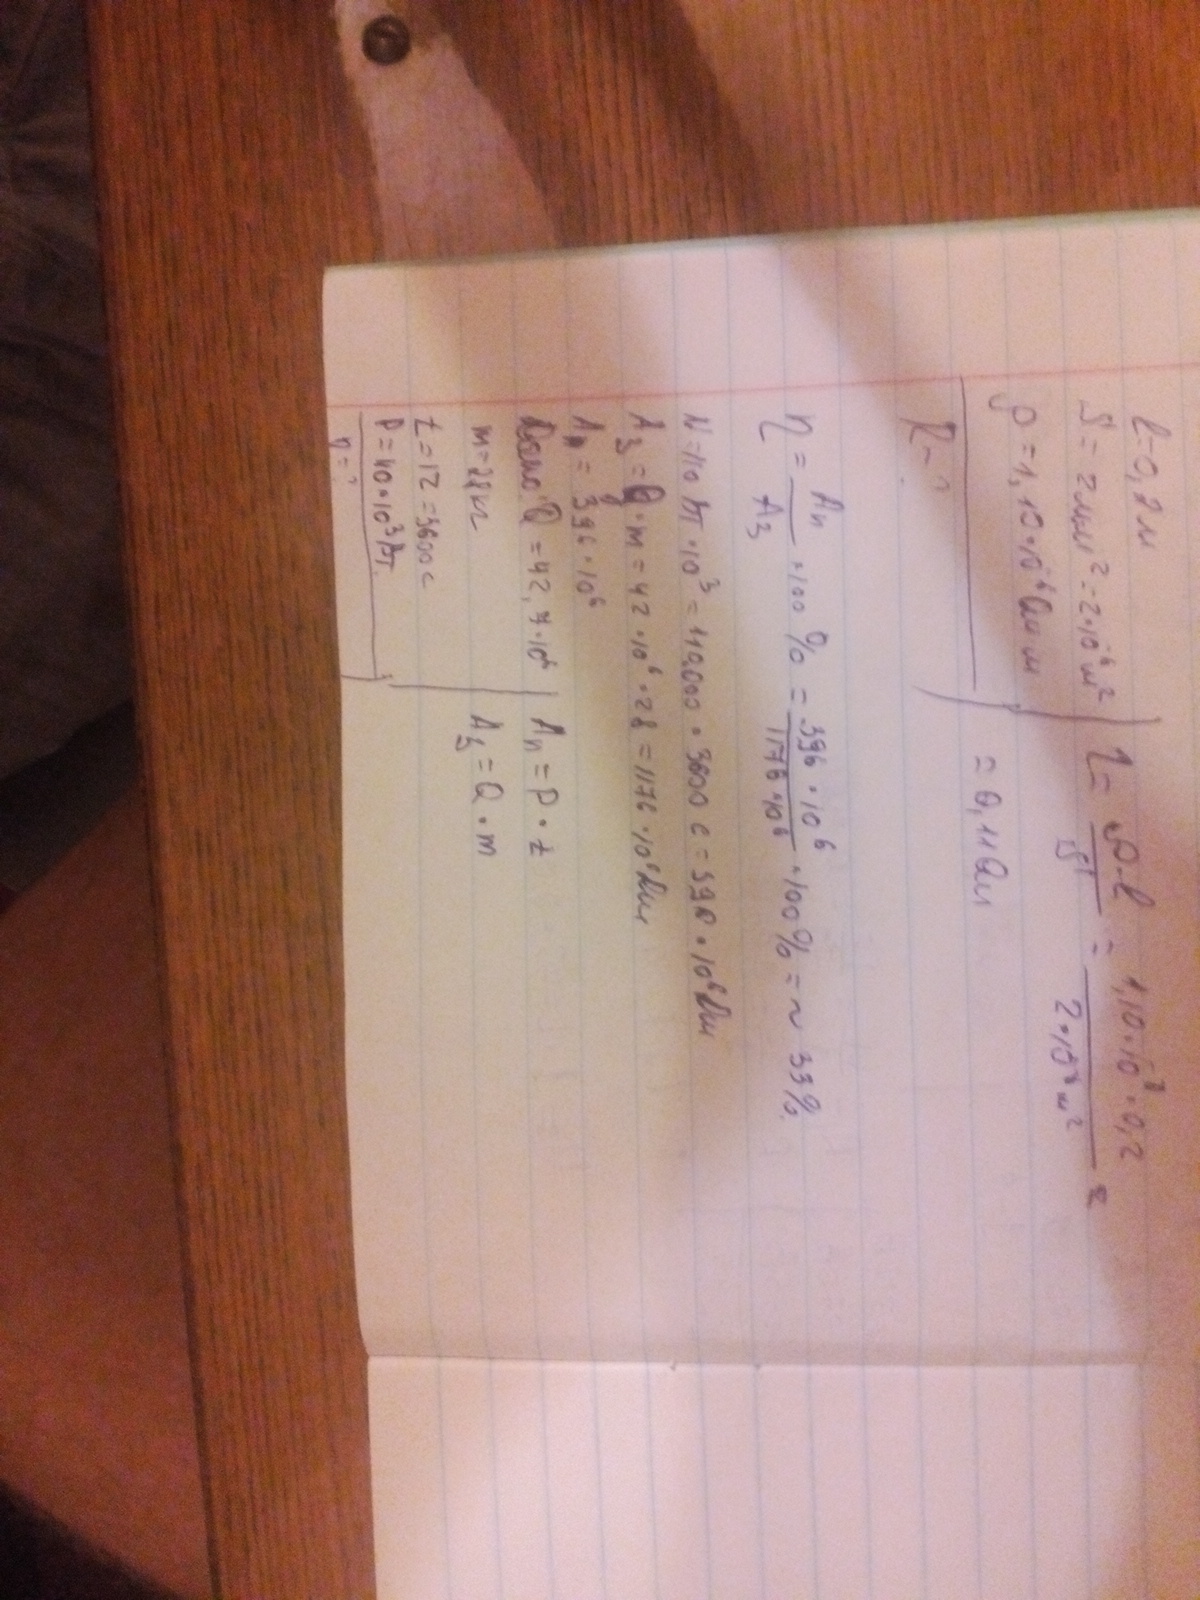 l-0,2 м
S = 2мм² = 2·10⁻⁶ м²
ρ = 1,10·10⁻⁶ Ом м
R-?
= ρ·l / S = 1,10·10 · 0,2 / 2·10 м² =
= 0,11 Ом
η = Aп / Aз · 100 % = 396·10⁶ / 1176·10⁶ · 100% = ~ 33%.
N = 110 Вт·10³ = 110,000 · 3600 с = 396·10⁶ Дж
Aз = Q·m = 42·10⁶·28 = 1176·10⁶ Дж
Aп = 396·10⁶
Дано Q = 42,7·10⁶
m = 28кг
t = 1Z = 3600 с
P = 40·10³ Вт.
η = ?
Aп = P·t
Aз = Q·m